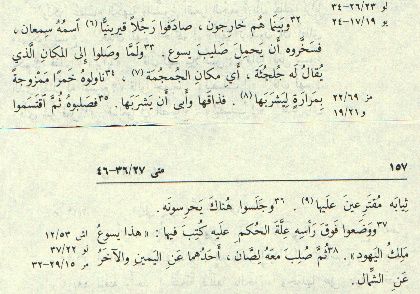 لو ٢٦/٢٣-٣٤
يو ١٧/١٩-٢٤
٣٢وبَينَما هُم خارِجون، صادَفوا رَجُلاً قيرينِيًّا (٦) اسمُهُ سِمعان،
فسَخَّروه أَن يَحمِلَ صَليبَ يسوع. ٣٣ولَمَّا وصَلوا إِلى المَكانِ الَّذي
يُقالُ لَه جُلجُثَة، أَي مَكانِ الجُمجُمَة (٧)، ٣٤ناوَلوهُ خَمرًا مَمْزوجةً
مز ٢٢/٦٩
و ١٩/٢١
بِمَرارَةٍ لِيَشرَبَها (٨). فذاقَها وأَبى أَن يَشرَبَها. ٣٥فصَلبوهُ ثُمَّ اقتَسَموا
١٥٧
متى ٣٦/٢٧-٤٦
ثِيابَه مُقتَرِعينَ علَيها (٩). ٣٦وجَلَسوا هُناكَ يَحرِسونَه.
٣٧ووَضَعوا فَوقَ رَأسِه عِلَّةَ الحُكمِ علَيه كُتِبَ فيها: «هذا يسوعُ
اش ١٢/٥٣
لو ٣٧/٢٢
مَلِكُ اليَهود». ٣٨ثُمَّ صُلِبَ معَهُ لِصَّان، أَحَدُهما عَنِ اليَمينِ والآخَرُ
مر ٢٩/١٥-٣٢
عَنِ الشِّمال.